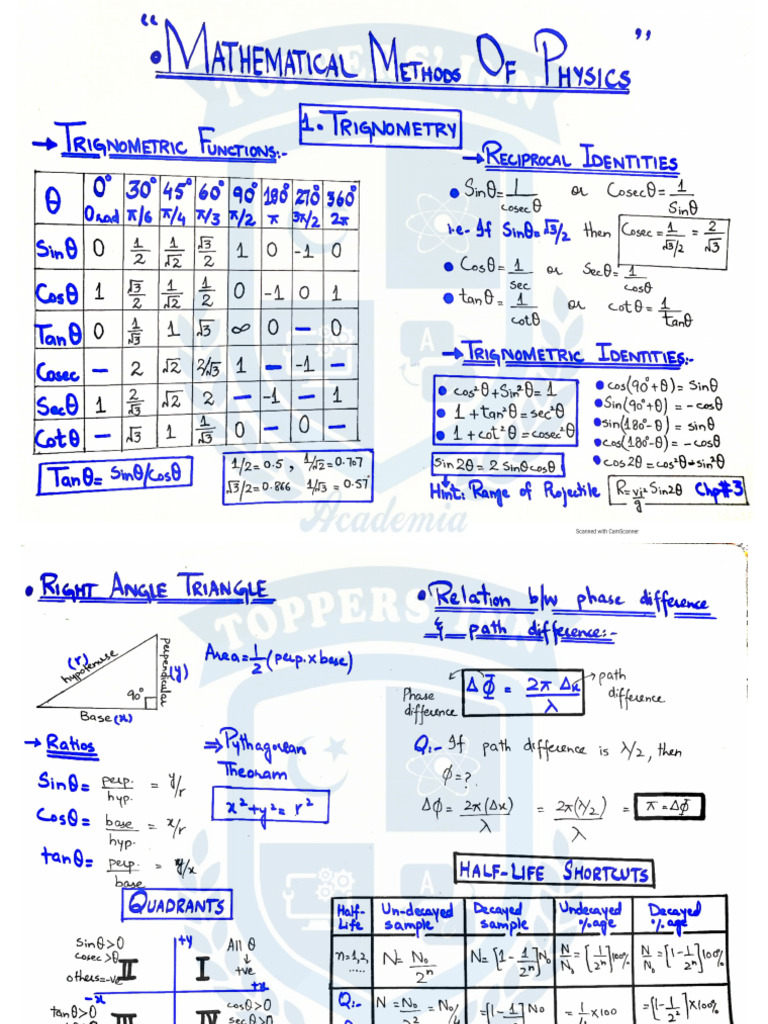 "
• MATHEMATICAL METHODS OF PHYSICS"
1. TRIGNOMETRY
→ TRIGNOMETRIC FUNCTIONS:-
θ 0° 30° 45° 60° 90° 180° 270° 360°
0 rad π/6 π/4 π/3 π/2 π 3π/2 2π
Sinθ 0 1/2 1/√2 √3/2 1 0 -1 0
Cosθ 1 √3/2 1/√2 1/2 0 -1 0 1
Tanθ 0 1/√3 1 √3 ∞ 0 – 0
Cosec – 2 √2 2/√3 1 – -1 –
Secθ 1 2/√3 √2 2 – -1 – 1
Cotθ – √3 1 1/√3 0 – 0 –
Tanθ = Sinθ/Cosθ
1/2 = 0.5 , 1/√2 = 0.707
√3/2 = 0.866 1/√3 = 0.57
→ RECIPROCAL IDENTITIES
• Sinθ = 1/cosecθ or Cosecθ = 1/Sinθ
i.e- If Sinθ = √3/2 then Cosec = 1/√3/2 = 2/√3
• Cosθ = 1/sec or Secθ = 1/cosθ
• tanθ = 1/cotθ or cotθ = 1/tanθ
→ TRIGNOMETRIC IDENTITIES:-
• cos²θ + Sin²θ = 1
• 1 + tan²θ = sec²θ
• 1 + cot²θ = cosec²θ
• cos(90°+θ) = Sinθ
• Sin(90°+θ) = -cosθ
• sin(180°-θ) = sinθ
• cos(180°-θ) = -cosθ
• cos2θ = cos²θ - sin²θ
sin2θ = 2 Sinθcosθ
Hint: Range of Projectile R = vi²/g Sin2θ Chp#3
TOPPERS' IAN
Academia
Scanned with CamScanner
• RIGHT ANGLE TRIANGLE
(r)
hypotenuse
Perpendicular
(y)
90°
Base (x)
Area = 1/2 (perp. x base)
→ Ratios
Sinθ = perp./hyp. = y/r
Cosθ = base/hyp. = x/r
tanθ = perp./base = y/x
⇒ Pythagorean
Theoram
x² + y² = r²
QUADRANTS
Sinθ>0
cosec>0
others=-ve
II
+y
I
All θ
↓
+ve
-x
+x
tanθ>0
III
IV
cosθ>0
secθ>0
• Relation b/w phase difference
& path difference:-
Phase
difference
ΔΦ = 2π Δx/λ
path
difference
Q:- If path difference is λ/2, then
ϕ = ?
Δϕ = 2π(Δx)/λ = 2π(λ/2)/λ = π = ΔΦ
HALF-LIFE SHORTCUTS
Half-Life Un-decayed sample Decayed sample Undecayed %age Decayed %age
n=1,2,..... N = N₀/2ⁿ N = [1 - 1/2ⁿ] N₀ N/N₀ = [1/2ⁿ] 100% N/N₀ = [1 - 1/2ⁿ] 100%
Q:- N = N₀/2² = N₀/4 = [1 - 1/2²] N₀ = 1/4 x 100 = [1 - 1/2²] x 100%
TOPPERS' IAN